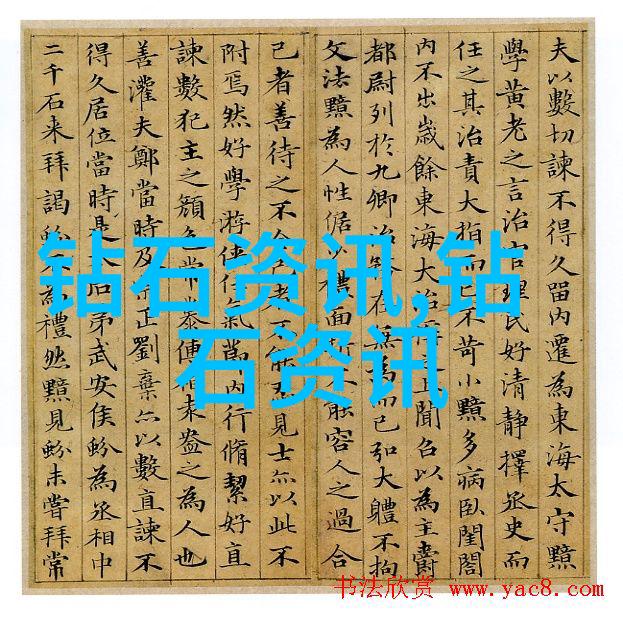 夫以數切諫不得久留內遷為東海太守黯
學黃老之言治官理民好清静擇丞史而
任之其治責大指而已不苛小黯多病臥閨閤
內不出歲餘東海大治稱之上聞召以為主爵
都尉列於九卿治務在無為而已弘大軆不拘
文法黯為人性倨少禮面折不能容人之過合
己者善待之不合己者不能忍見士亦以此不
附焉然好學游俠任氣節內行脩絜好直
諫數犯主之顏色常慕傅柏袁盎之為人也
善灌夫鄭當時及宗正劉棄亦以數直諫不
得久居位當時是太后弟武安侯蚡為丞相中
二千石来拜謁蚡不為禮然黯見蚡未嘗拜常
钻石资讯,钻
石资讯
书法欣赏 www.yac8.com